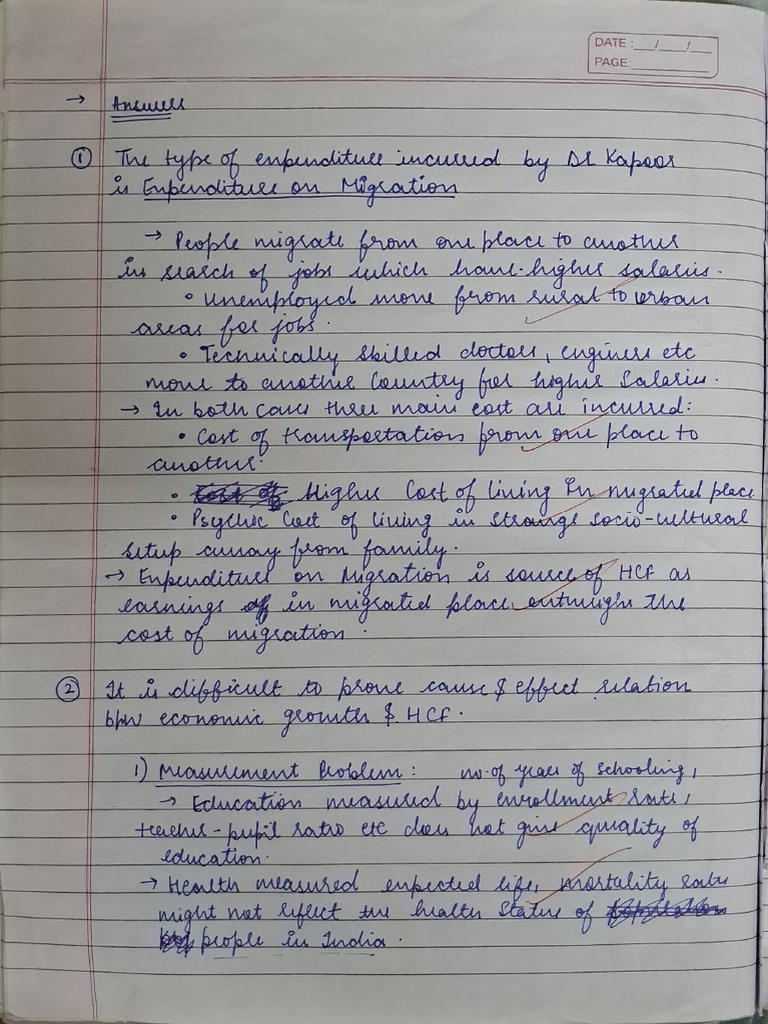 DATE: __/__/__
PAGE: ______
→ Answers
① The type of expenditure incurred by Dr Kapoor
is Expenditure on Migration
→ People migrate from one place to another
in search of jobs which have higher salaries.
• Unemployed move from rural to urban
areas for jobs.
• Technically skilled doctors, engineers etc
move to another country for higher salaries.
→ In both cases three main cost are incurred:
• Cost of transportation from one place to
another.
• Higher Cost of living in migrated place
• Psychic Cost of living in strange socio-cultural
setup away from family.
→ Expenditure on Migration is source of HCF as
earnings in migrated place outweighs the
cost of migration.
② It is difficult to prove cause & effect relation
btw economic growth & HCF.
1) Measurement Problem: no. of years of schooling,
→ Education measured by enrollment rate,
teacher-pupil ratio etc does not give quality of
education.
→ Health measured expected life, mortality rate
might not reflect the health status of
people in India.